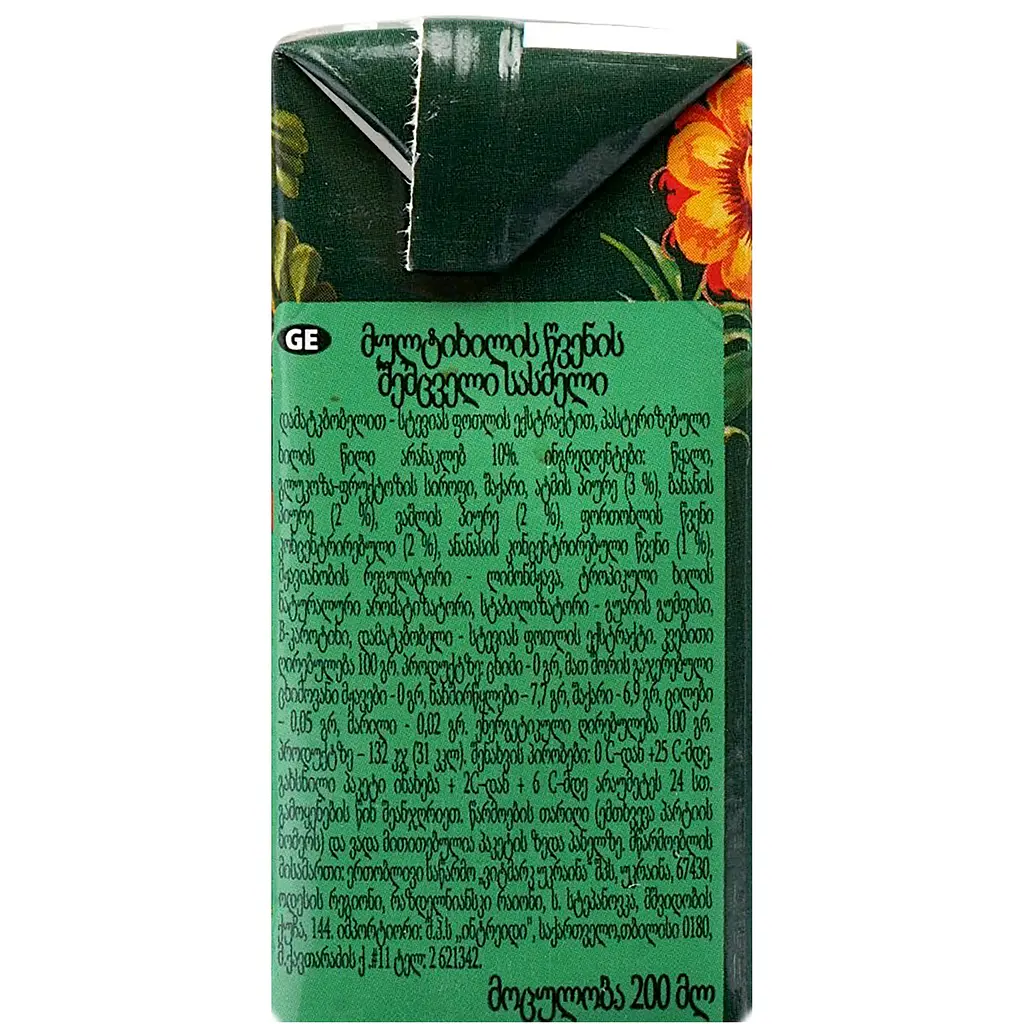 GE
მულტიხილის წვენის
შემცველი სასმელი
დამატკბობელით - სტევიას ფოთლის ექსტრაქტით, პასტერიზებული
ხილის წილი არანაკლებ 10%. ინგრედიენტები: წყალი,
გლუკოზა-ფრუქტოზის სიროფი, შაქარი, ატმის პიურე (3 %), ბანანის
პიურე (2 %), ვაშლის პიურე (2 %), ფორთოხლის წვენი
კონცენტრირებული (2 %), ანანასის კონცენტრირებული წვენი (1 %),
მჟავიანობის რეგულატორი - ლიმონმჟავა, ტროპიკული ხილის
ნატურალური არომატიზატორი, სტაბილიზატორი - გუარის გუმფისი,
B-კაროტინი, დამატკბობელი - სტევიას ფოთლის ექსტრაქტი. კვებითი
ღირებულება 100 გრ. პროდუქტზე: ცხიმი - 0 გრ, მათ შორის გაჯერებული
ცხიმოვანი მჟავები - 0 გრ, ნახშირწყლები – 7,7 გრ, შაქარი - 6,9 გრ, ცილები
- 0,05 გრ, მარილი - 0,02 გრ. ენერგეტიკული ღირებულება 100 გრ.
პროდუქტზე – 132 კჯ (31 კკლ). შენახვის პირობები: 0 C-დან +25 C-მდე.
გახსნილი პაკეტი ინახება + 2C-დან + 6 C-მდე არაუმეტეს 24 სთ.
გამოყენების წინ შეანჯღრიეთ. წარმოების თარიღი (ემთხვევა პარტიის
ნომერს) და ვადა მითითებულია პაკეტის ზედა პანელზე. მწარმოებლის
მისამართი: ერთობლივი საწარმო „ვიტმარკ უკრაინა“ შპს, უკრაინა, 67430,
ოდესის რეგიონი, რაზდელნიანსკი რაიონი, ს. სტეპანოვკა, მშვიდობის
ქუჩა, 144. იმპორტიორი: შ.პ.ს „ინტრეიდი”, საქართველო,თბილისი 0180,
მ.ქავთარაძის ქ .#11 ტელ: 2 621342.
მოცულობა 200 მლ